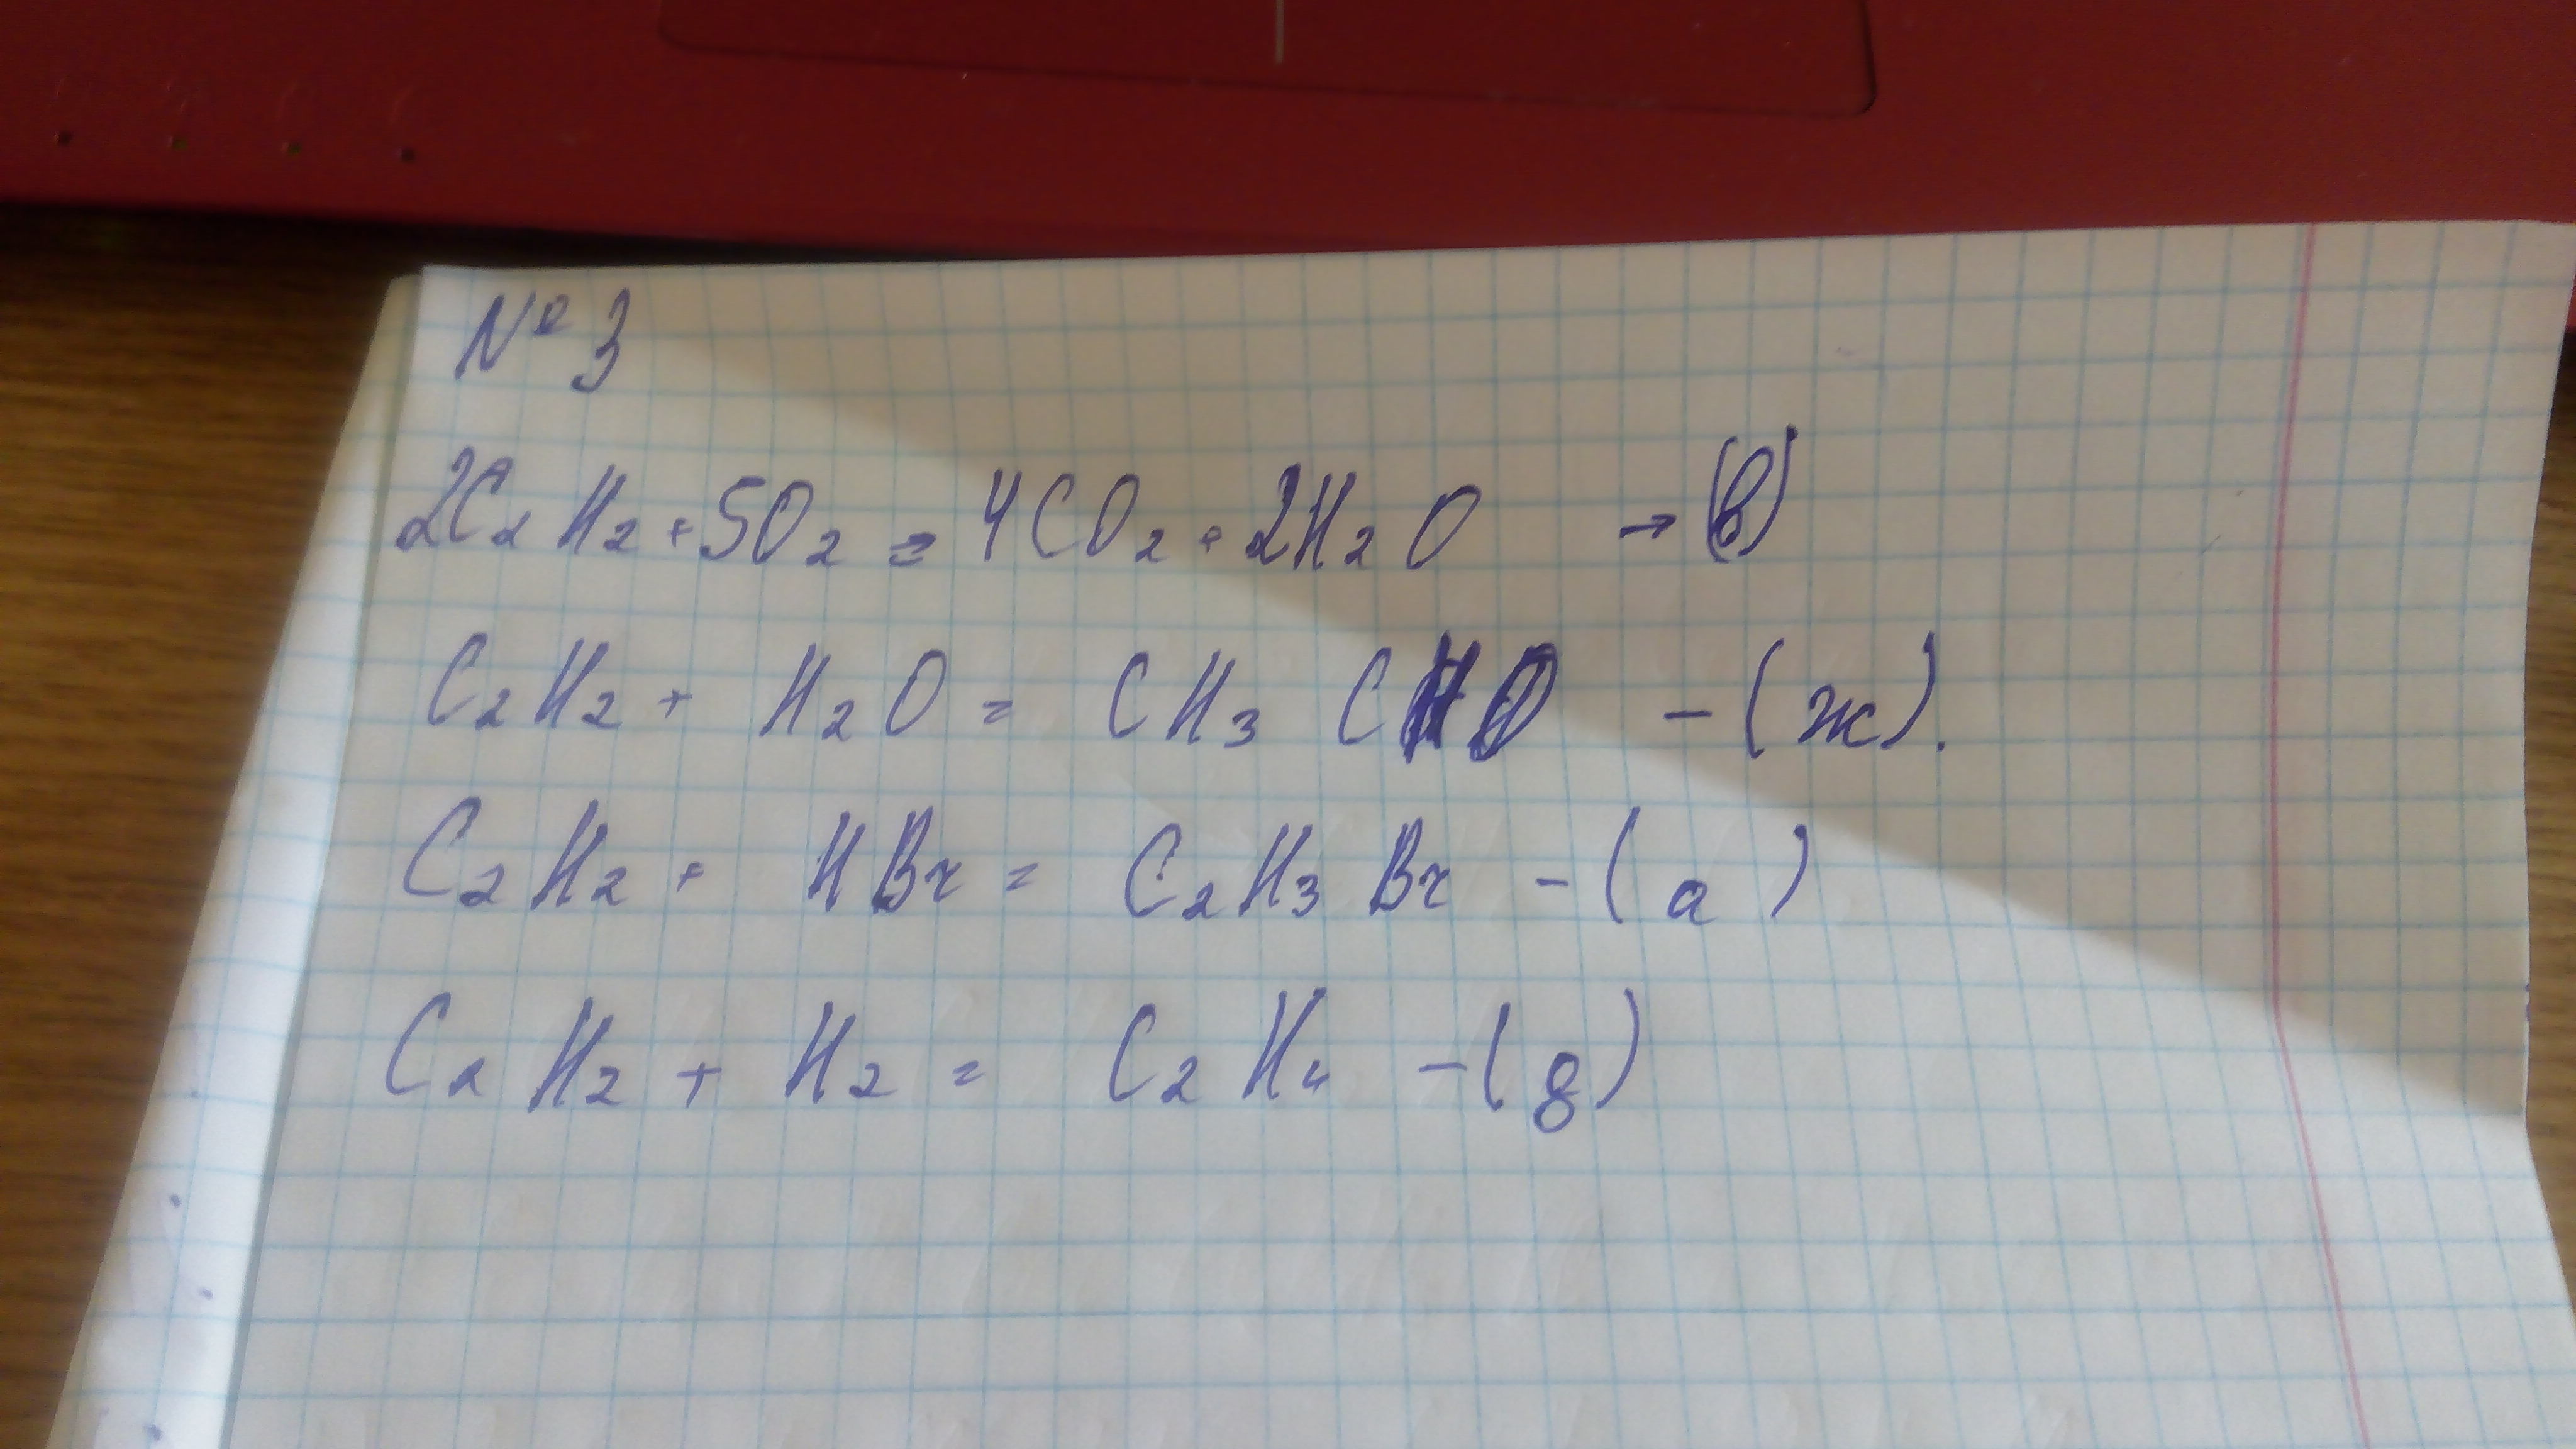 № 3
2C₂H₂ + 5O₂ = 4CO₂ + 2H₂O → (в)
C₂H₂ + H₂O = CH₃CHO - (ж).
C₂H₂ + HBr = C₂H₃Br - (а)
C₂H₂ + H₂ = C₂H₄ - (д)